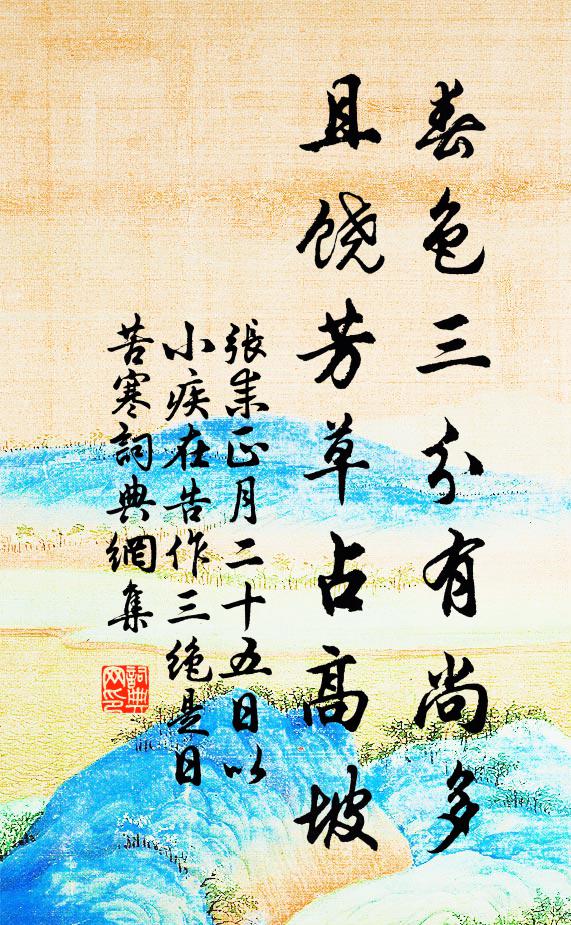 春色三分有尚多
且饶芳草占高坡
張耒正月二十五日以
小疾在告作三绝是日
苦寒詞典網集
詞典
网印